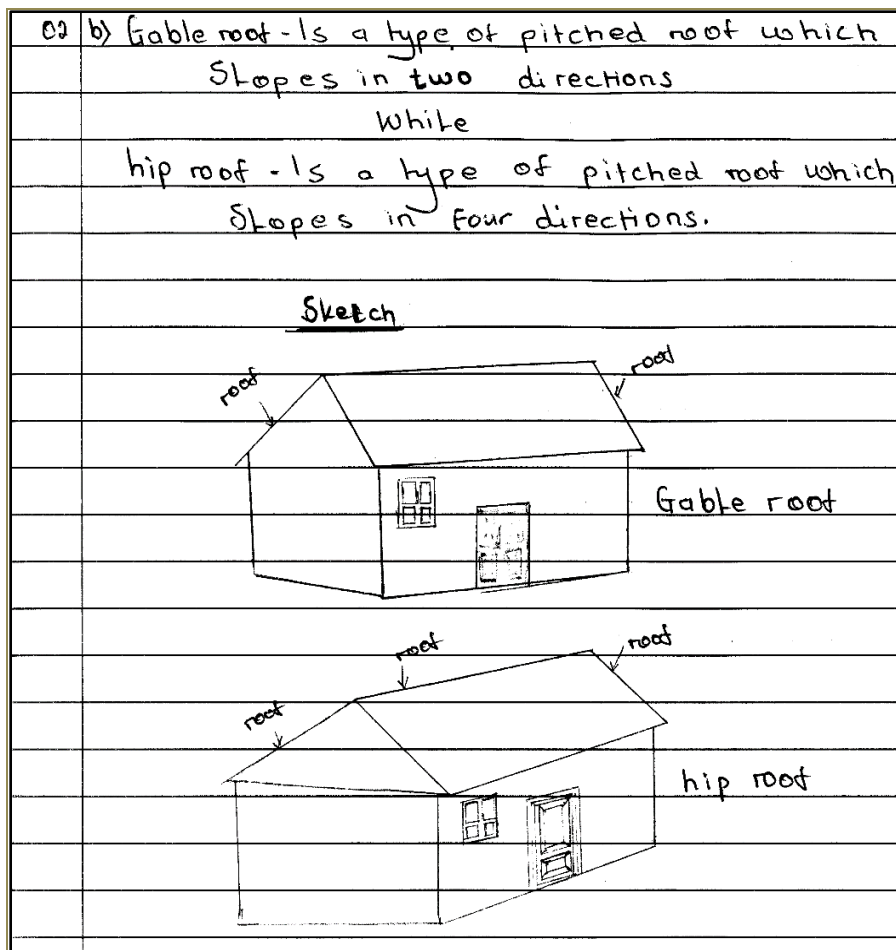 02 b) Gable roof - Is a type of pitched roof which
Slopes in two directions
While
hip roof - Is a type of pitched roof which
Slopes in Four directions.
Sketch
roof
roof
Gable roof
roof
roof
roof
hip roof